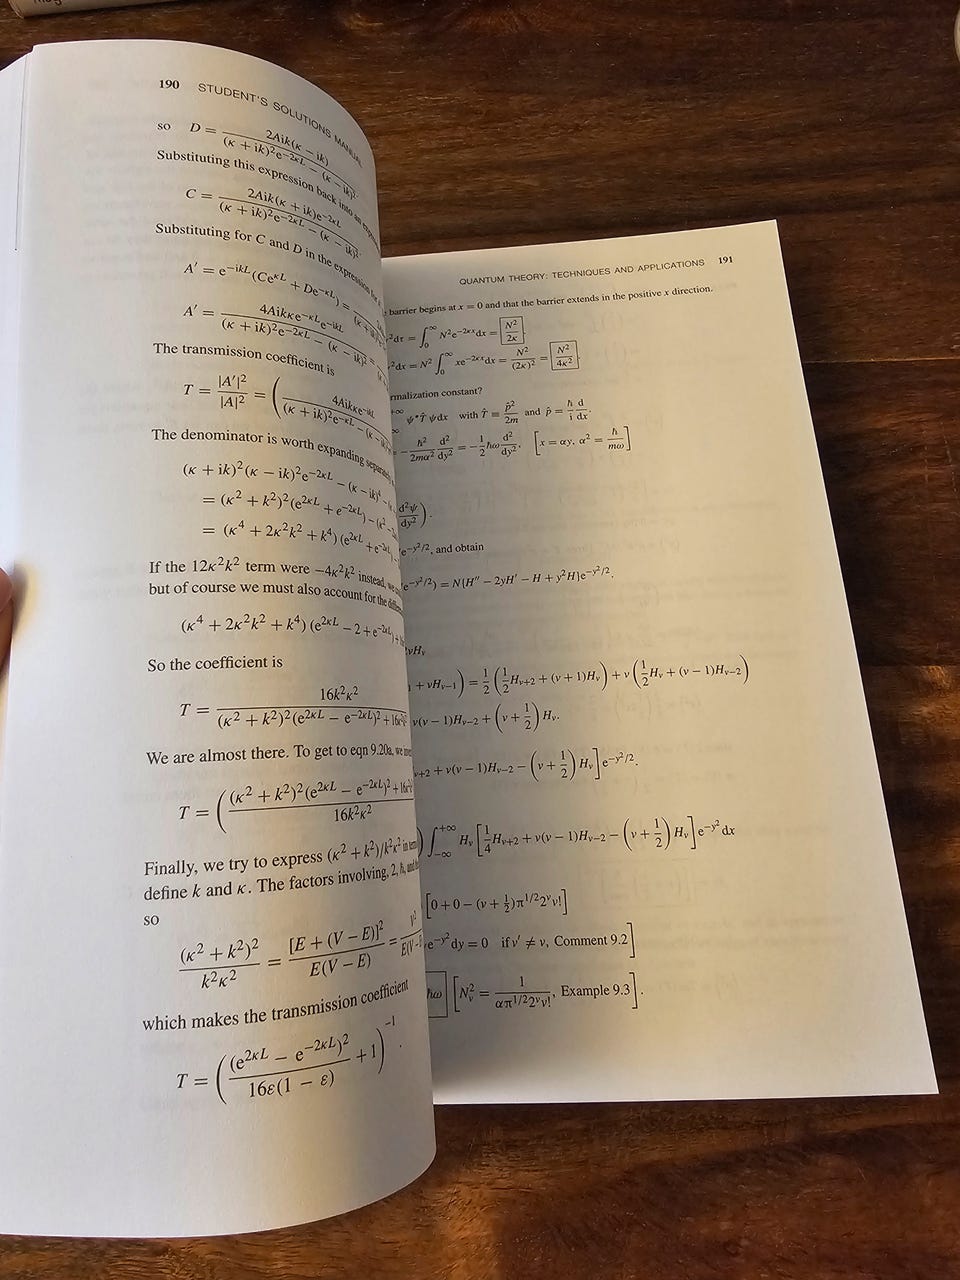 190 STUDENT'S SOLUTIONS MANUAL
so D = 2Aik(κ − ik) / (κ + ik)²e^−2κL − (κ − ik)²
Substituting this expression back into an
C = 2Aik(κ + ik)e^−2κL / (κ + ik)²e^−2κL − (κ − ik)²
Substituting for C and D in the expression for
A′ = e^−ikL (Ce^κL + De^−κL) =
A′ = 4Aikκe^−κL e^−ikL / (κ + ik)²e^−2κL − (κ − ik)² =
The transmission coefficient is
T = |A′|² / |A|² = ( 4Aikκe^−ikL / (κ + ik)²e^−κL − (κ − ik)
The denominator is worth expanding separately
(κ + ik)²(κ − ik)²e^−2κL − (κ − ik)⁴ −
= (κ² + k²)²(e^2κL + e^−2κL) − (κ² −
= (κ⁴ + 2κ²k² + k⁴)(e^2κL + e^−2κL)
If the 12κ²k² term were −4κ²k² instead, we
but of course we must also account for the
(κ⁴ + 2κ²k² + k⁴)(e^2κL − 2 + e^−2κL) +
So the coefficient is
T = 16k²κ² / (κ² + k²)²(e^2κL − e^−2κL)² + 16κ²k²
We are almost there. To get to eqn 9.20a, we
T = ( (κ² + k²)²(e^2κL − e^−2κL)² + 16 / 16k²κ²
Finally, we try to express (κ² + k²)/k²κ² in
define k and κ. The factors involving, 2, ħ, and
so
(κ² + k²)² / k²κ² = [E + (V − E)]² / E(V − E) = V² / E(V −
which makes the transmission coefficient
T = ( (e^2κL − e^−2κL)² / 16ε(1 − ε) + 1 )^−1.
QUANTUM THEORY: TECHNIQUES AND APPLICATIONS 191
barrier begins at x = 0 and that the barrier extends in the positive x direction.
²dτ = ∫₀^∞ N²e^−2κx dx = N² / 2κ
²dx = N² ∫₀^∞ xe^−2κx dx = N² / (2κ)² = N² / 4κ²
rmalization constant?
+∞ ψ*T̂ψdx with T̂ = p̂² / 2m and p̂ = ħ/i d/dx.
= −ħ² / 2mα² d² / dy² = −½ħω d² / dy², [x = αy, α² = ħ / mω]
d²ψ / dy²).
e^−y²/2, and obtain
e^−y²/2) = N{H″ − 2yH′ − H + y²H}e^−y²/2.
νHν
+ νHν−1) = ½(½Hν+2 + (ν + 1)Hν) + ν(½Hν + (ν − 1)Hν−2)
ν(ν − 1)Hν−2 + (ν + ½)Hν.
ν+2 + ν(ν − 1)Hν−2 − (ν + ½)Hν]e^−y²/2.
) ∫−∞^+∞ Hν[¼Hν+2 + ν(ν − 1)Hν−2 − (ν + ½)Hν]e^−y² dx
[0 + 0 − (ν + ½)π^1/2 2^ν ν!]
e^−y² dy = 0 if ν′ ≠ ν, Comment 9.2]
ħω [Nν² = 1 / απ^1/2 2^ν ν!, Example 9.3].